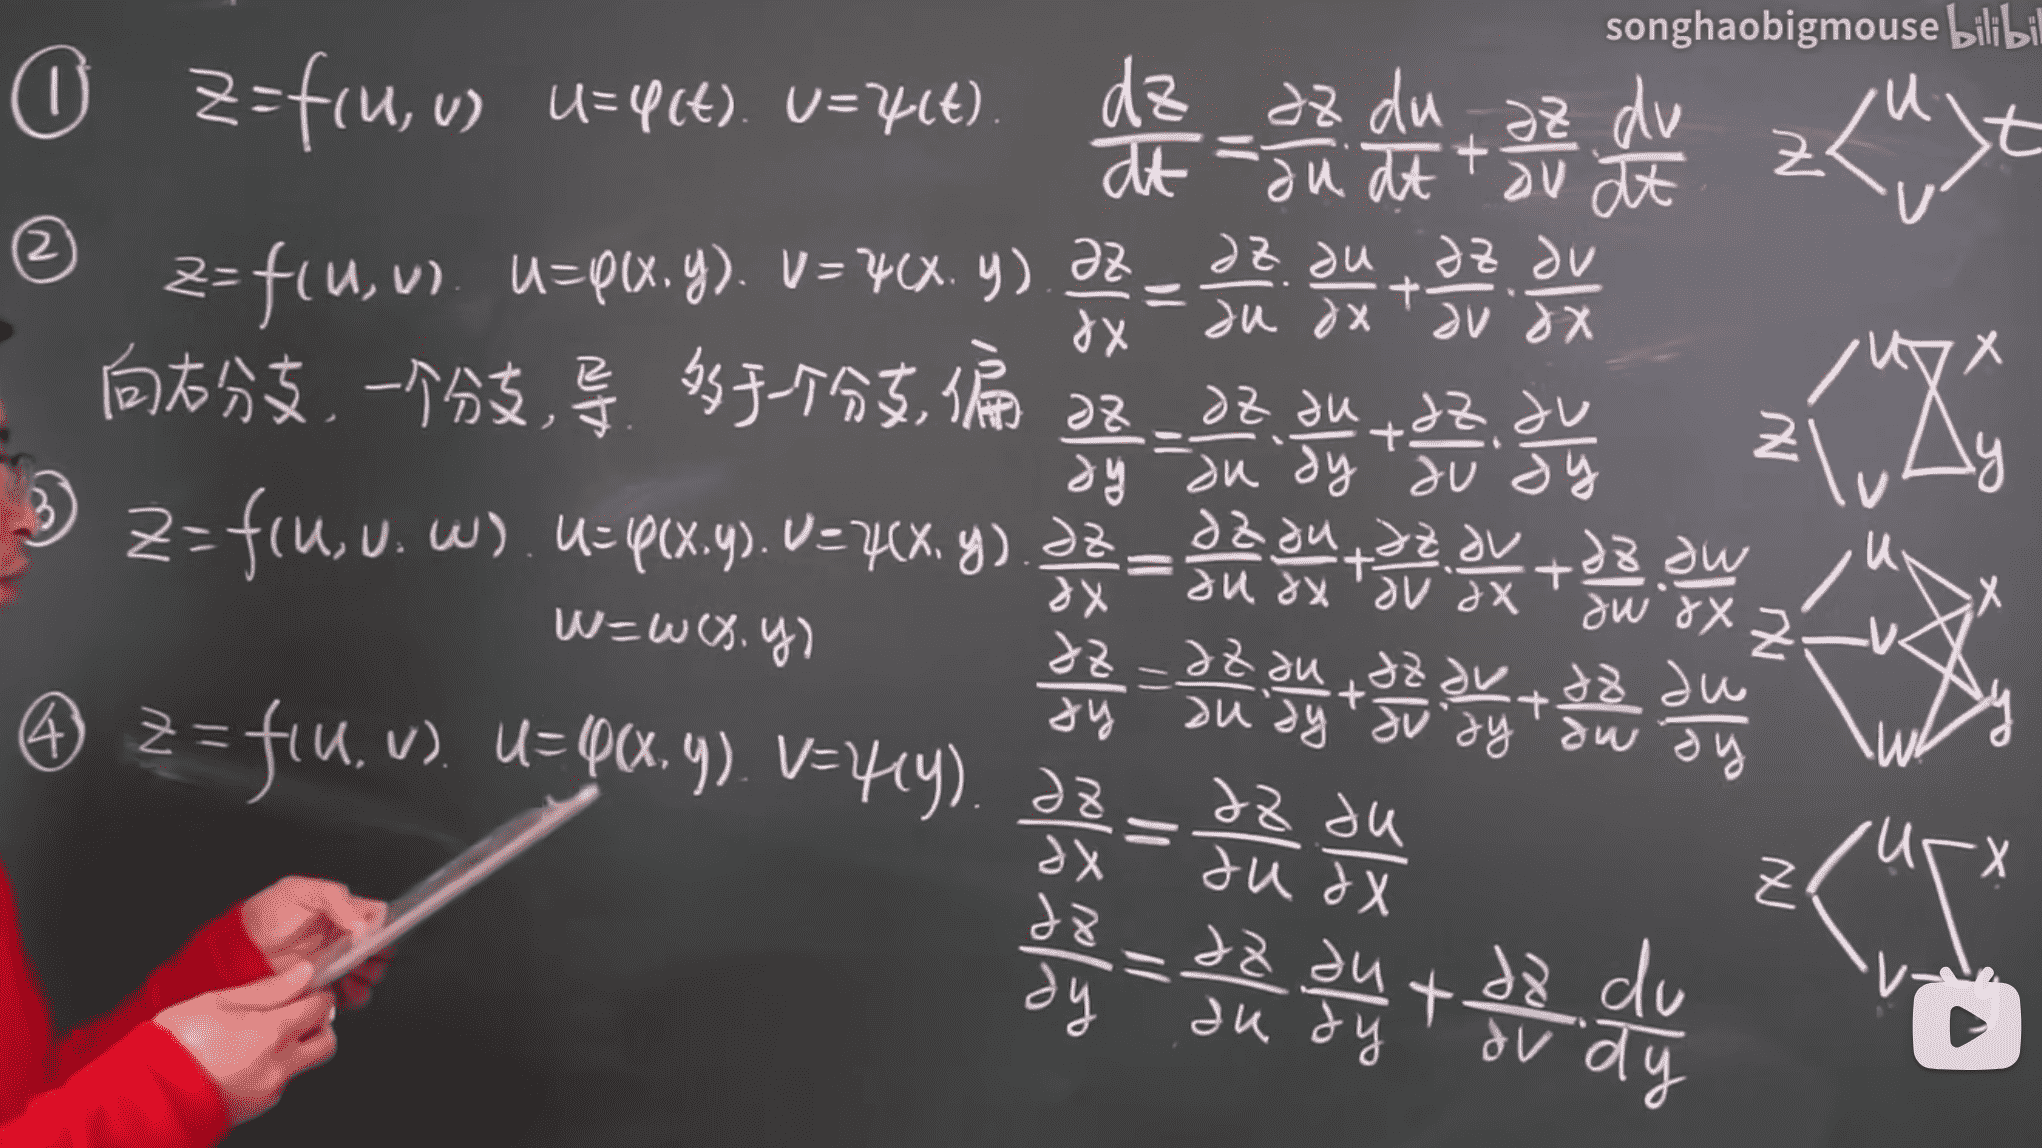 songhaobigmouse bilibil
① z=f(u,v) u=φ(t). v=ψ(t). dz/dt=∂z/∂u·du/dt+∂z/∂v·dv/dt
z u v t
② z=f(u,v). u=φ(x,y). v=ψ(x.y). ∂z/∂x=∂z/∂u·∂u/∂x+∂z/∂v·∂v/∂x
向右分支,一个分支,导. 多于一个分支,偏
∂z/∂y=∂z/∂u·∂u/∂y+∂z/∂v·∂v/∂y
z u v x y
③ z=f(u,v.w). u=φ(x.y). v=ψ(x.y). ∂z/∂x=∂z/∂u·∂u/∂x+∂z/∂v·∂v/∂x+∂z/∂w·∂w/∂x
w=w(x.y)
∂z/∂y=∂z/∂u·∂u/∂y+∂z/∂v·∂v/∂y+∂z/∂w·∂w/∂y
z u v w x y
④ z=f(u,v). u=φ(x,y). v=ψ(y).
∂z/∂x=∂z/∂u·∂u/∂x
∂z/∂y=∂z/∂u·∂u/∂y+∂z/∂v·dv/dy
z u v x